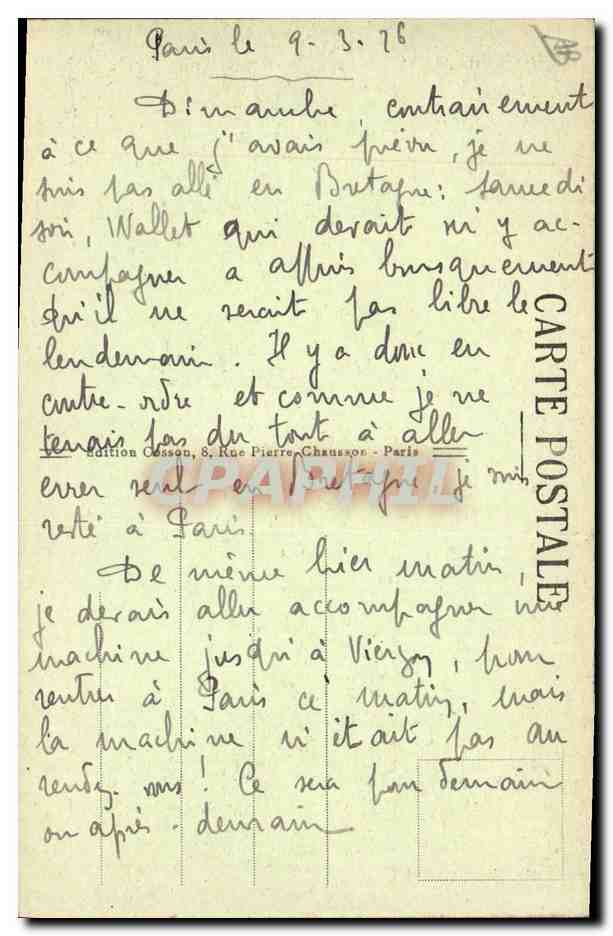 Paris le 9-3-26
Dimanche, contrairement
à ce que j'avais prévu, je ne
suis pas allé en Bretagne: samedi
soir, Wallet qui devait m'y ac-
compagner a appris brusquement
qu'il ne serait pas libre le
lendemain. Il y a donc eu
contre-ordre et comme je ne
tenais pas du tout à aller
Edition Cosson, 8, Rue Pierre Chausson - Paris
errer seul en Bretagne je suis
CPAPHIL
resté à Paris.
De même hier matin,
je devais aller accompagner une
machine jusqu'à Vierzon, pour
rentrer à Paris ce matin, mais
la machine n'était pas au
rendez-vous! Ce sera pour demain
ou après-demain
CARTE POSTALE